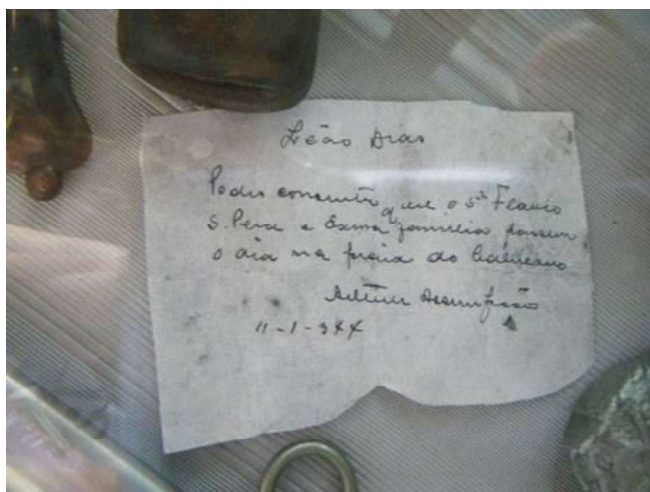 Leão Dias
Podes consentir que o Snr Flavio
S. Pera e Exma familia passem
o dia na praia do Balneario
Arthur Assumpção
11-1-944